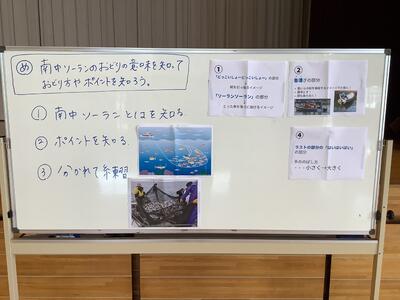 め 南中ソーランのおどりの意味を知って
おどり方やポイントを知ろう。
① 南中ソーランとはを知る。
② ポイントを知る。
③ 分かれて練習
①
「どっこいしょーどっこいしょー」の部分
網を引っ張るイメージ
「ソーランソーラン」の部分
とった魚を後ろに投げるイメージ
②
の部分
④
ラストの部分の「はいはいはい」
の部分
手ののばし方
・・・小さく→大きく